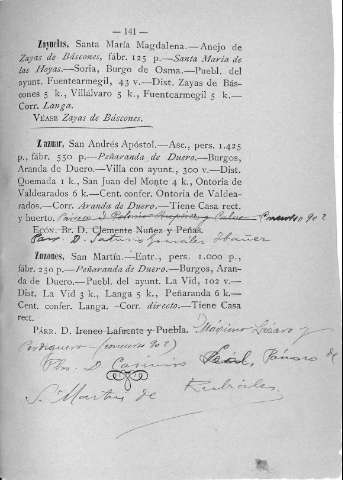 — 141 —
Zayuelas, Santa María Magdalena.—Anejo de
Zayas de Báscones, fábr. 125 p.—Santa María de
las Hoyas.—Soria, Burgo de Osma.—Puebl. del
ayunt. Fuentearmegil, 43 v.—Dist. Zayas de Bás-
cones 5 k., Villálvaro 5 k., Fuentearmegil 5 k.—
Corr. Langa.
VÉASE Zayas de Báscones.
Zuzuar, San Andrés Apóstol.—Asc., pers. 1.425
p., fábr. 550 p.—Peñaranda de Duero.—Burgos,
Aranda de Duero.—Villa con ayunt., 300 v.—Dist.
Quemada 1 k., San Juan del Monte 4 k., Ontoria de
Valdearados 6 k.—Cent. confer. Ontoria de Valdea-
rados.—Corr. Aranda de Duero.—Tiene Casa rect.
y huerto.
ECÓN. Br. D. Clemente Nuñez y Peñas.
Parr. D. Saturio González Ibáñez
Zuzones, San Martín.—Entr., pers. 1.000 p.,
fábr. 250 p.—Peñaranda de Duero.—Burgos, Aran-
da de Duero.—Puebl. del ayunt. La Vid, 102 v.—
Dist. La Vid 3 k., Langa 5 k., Peñaranda 6 k.—
Cent. confer. Langa.—Corr. directo.—Tiene Casa
rect.
PÁRR. D. Ireneo Lafuente y Puebla. Máximo Lázaro y
(enero 902)
Pbro. D. Casimiro Leal, Párroco de
Sn Martín de Rubiales